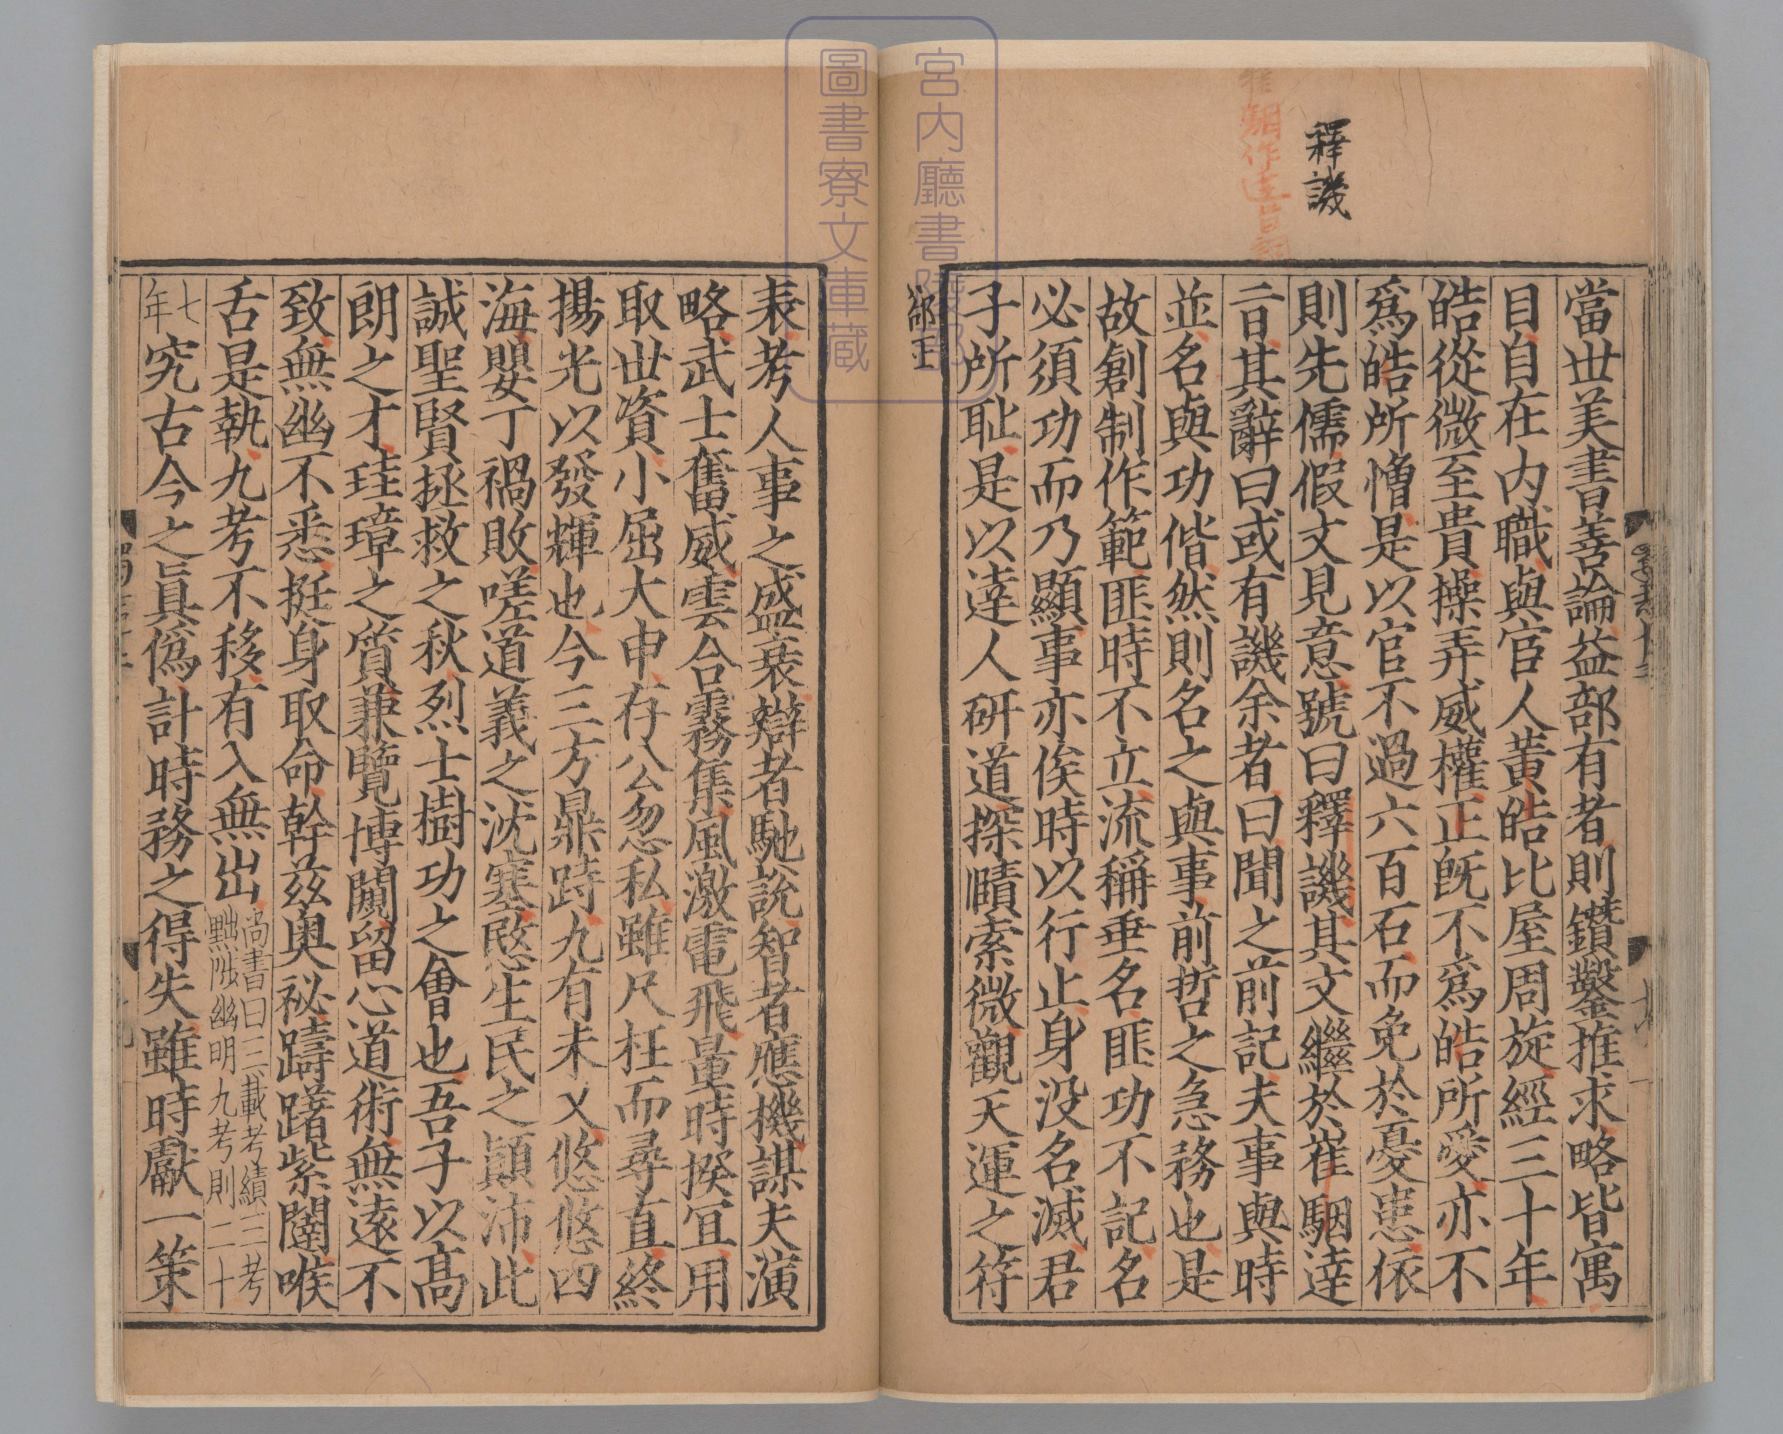 釋譏
當世美書善論益部有者則鑽鑿推求略皆寓
目自在内職與官人黃皓比屋周旋經三十年
皓從微至貴操弄威權正旣不爲皓所愛亦不
爲皓所憎是以官不過六百石而免於憂患依
則先儒假文見意號曰釋譏其文繼於崔駰達
旨其辭曰或有譏余者曰聞之前記夫事與時
並名與功偕然則名之與事前哲之急務也是
故創制作範匪時不立流稱垂名匪功不記名
必須功而乃顯事亦俟時以行止身没名滅君
子所耻是以達人硏道探賾索微觀天運之符
郤正
表考人事之盛衰辯者馳說智者應機謀夫演
略武士奮威雲合霧集風激電飛量時揆冝用
取世資小屈大申存公忽私雖尺枉而尋直終
揚光以發輝也今三方鼎跱九有未乂悠悠四
海嬰丁禍敗嗟道義之沈塞愍生民之顚沛此
誠聖賢拯救之秋烈士樹功之會也吾子以高
朗之才珪璋之質兼覽博闚留心道術無遠不
致無幽不悉挺身取命幹兹奧祕躊躇紫闥喉
舌是執九考不移有入無出尚書曰三載考績三考
黜陟幽明九考則二十
七
年究古今之眞僞計時務之得失雖時獻一策
宮内廳書陵部
圖書寮文庫藏